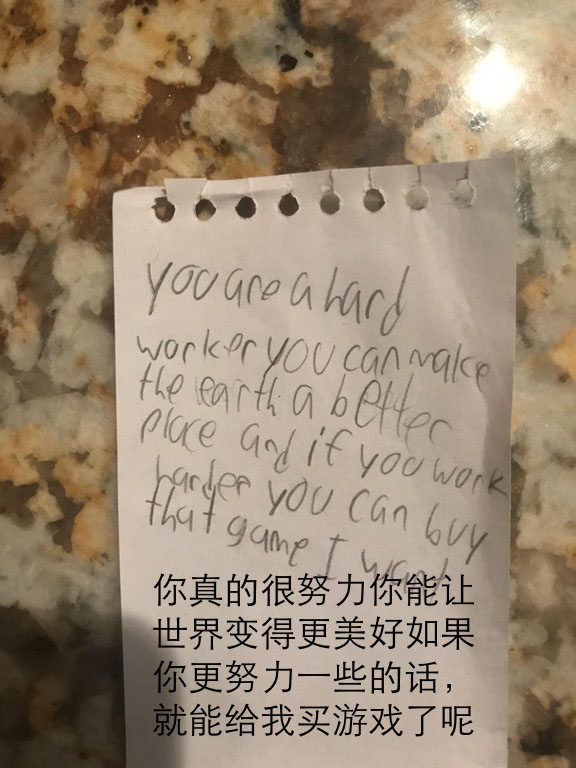 you are a hard
worker you can make
the earth a better
place and if you work
harder you can buy
that game I want
你真的很努力你能让
世界变得更美好如果
你更努力一些的话，
就能给我买游戏了呢